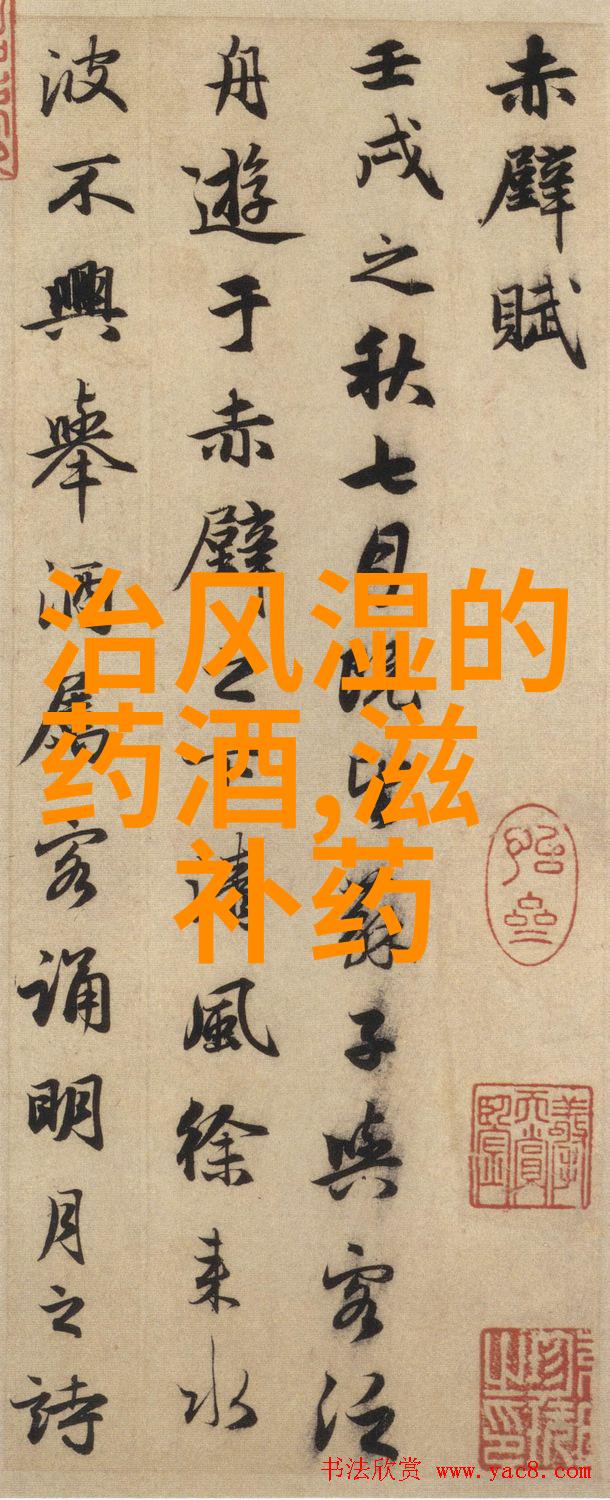 赤壁賦
壬戌之秋七月既望蘇子與客泛
舟遊于赤壁之下清風徐来水
波不興舉酒屬客誦明月之詩
治风湿的
药酒,滋
补药
书法欣赏 www.yac8.com